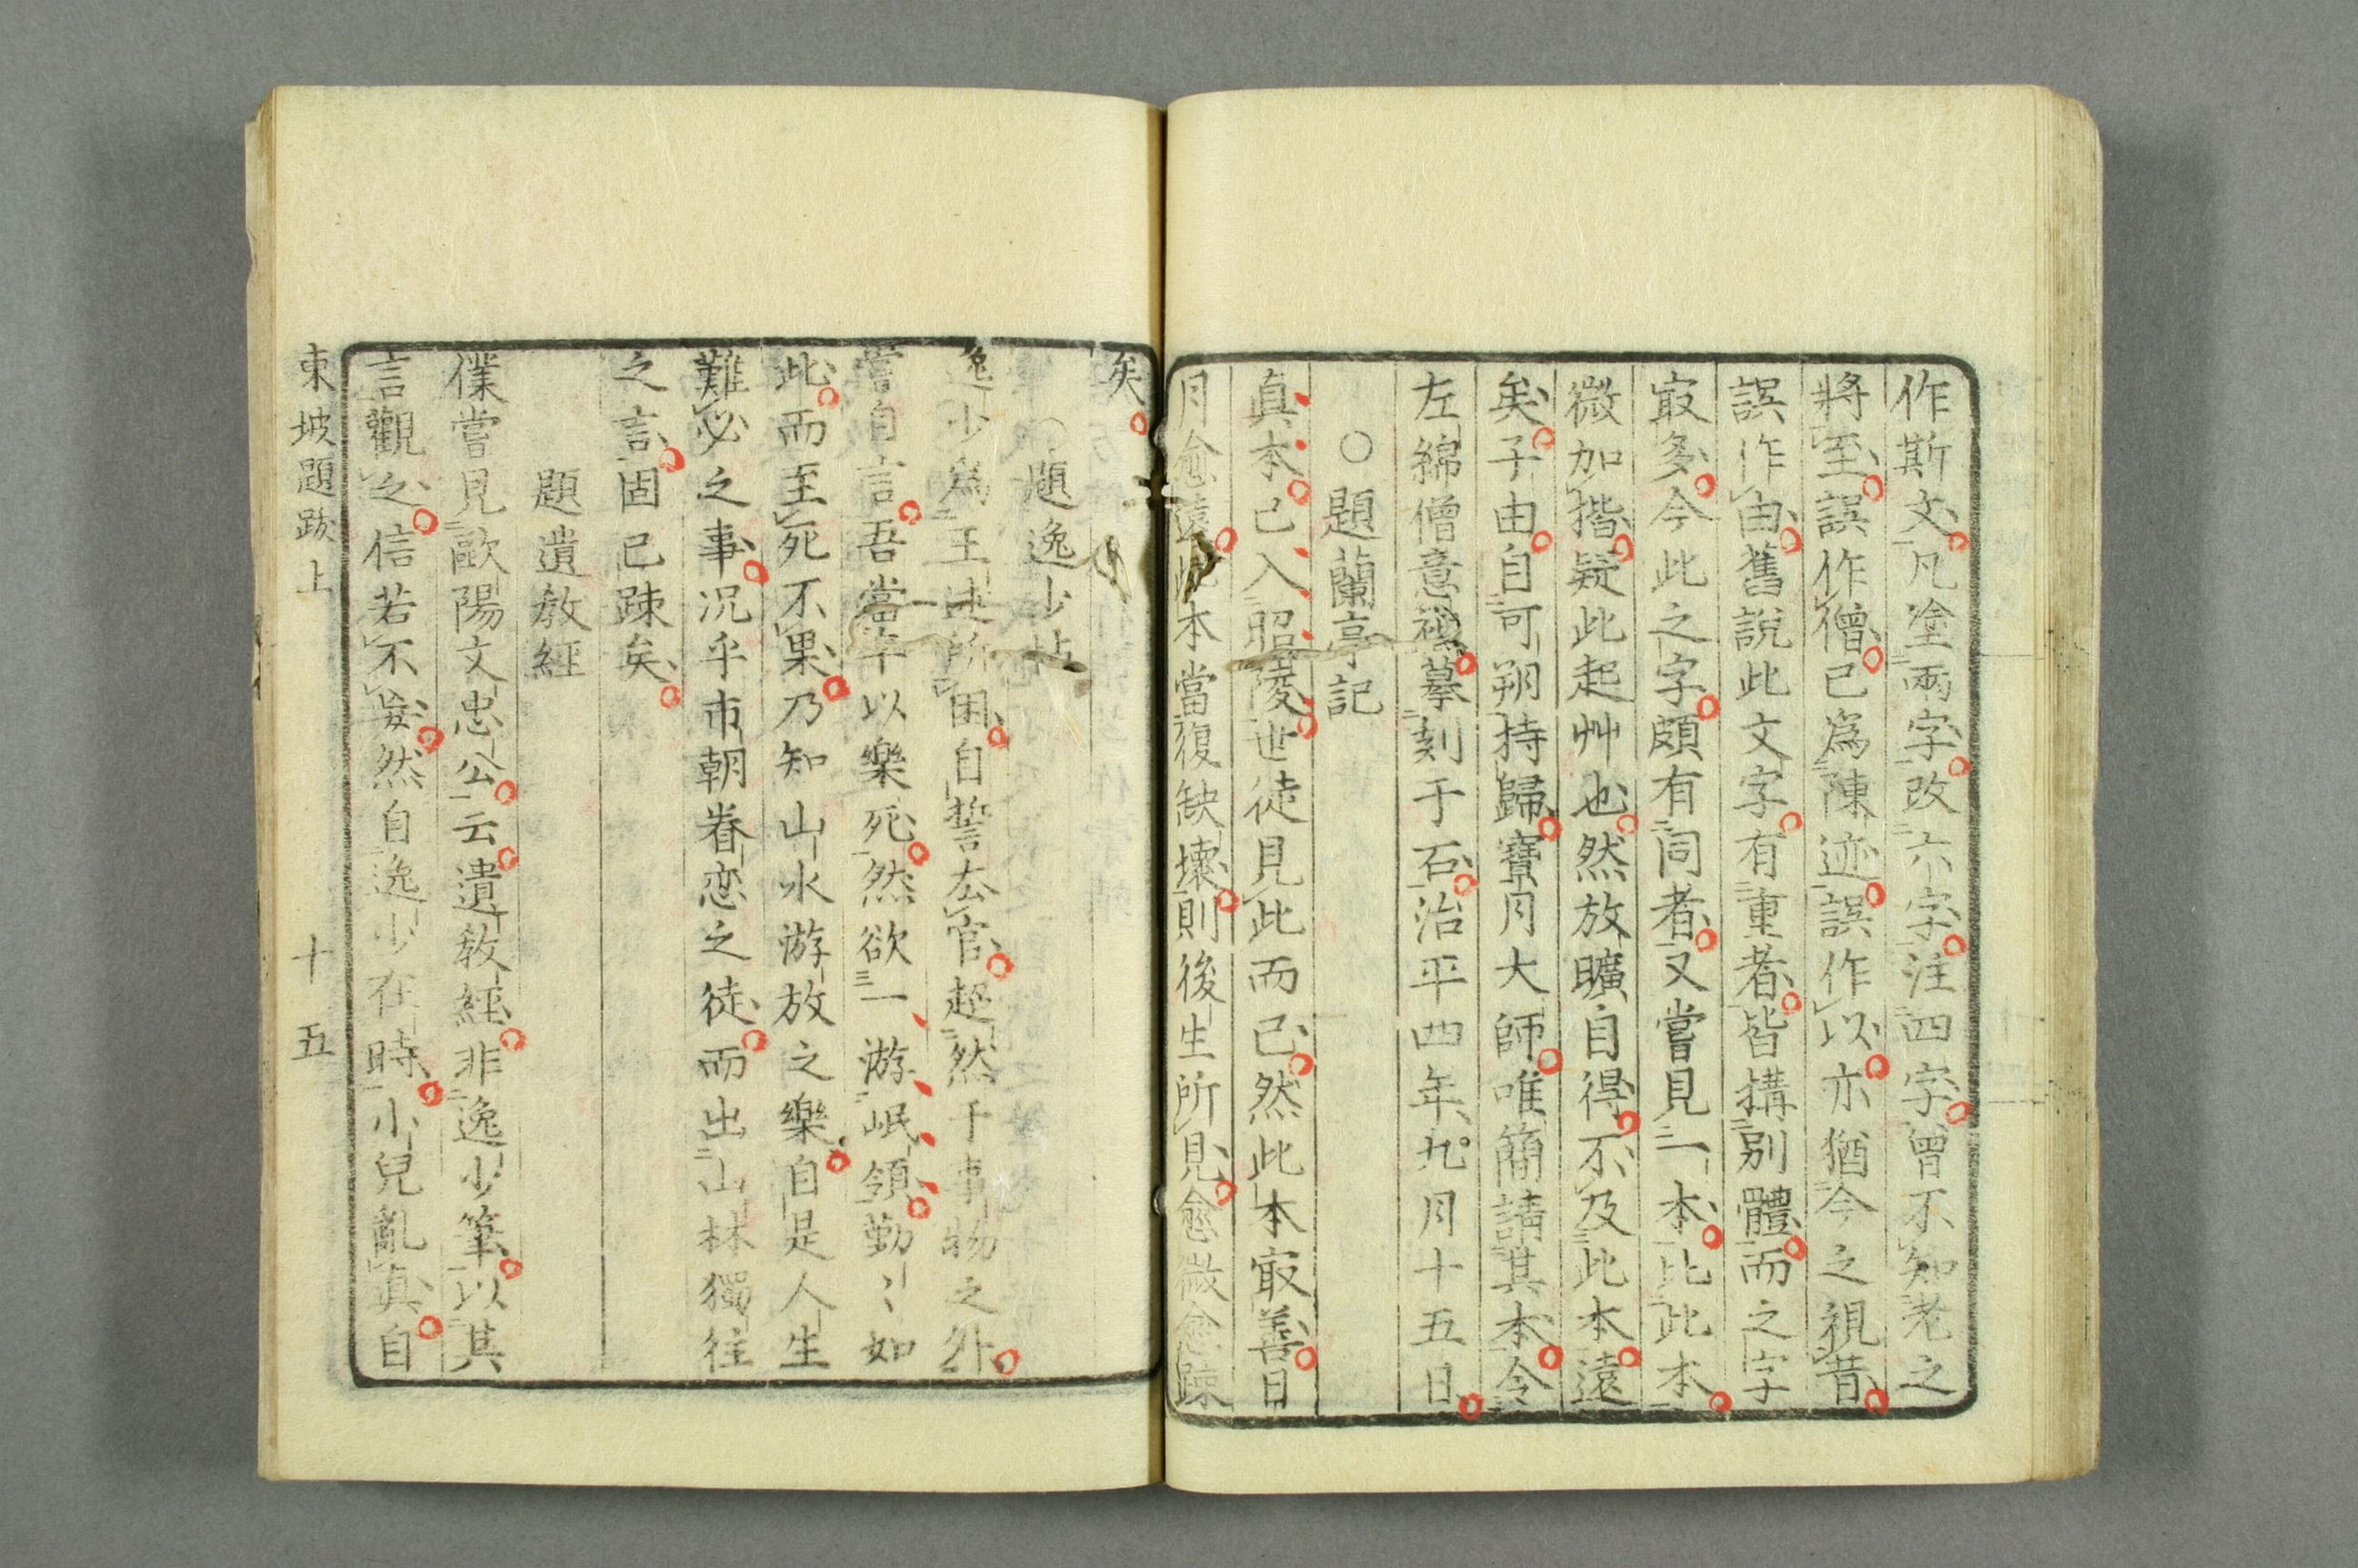 作斯文凡塗兩字改六字注四字曾不知老之
將至誤作僧已為陳迹誤作以亦猶今之視昔
誤作由舊說此文字有重者皆搆別體而之字
㝡多今此之字頗有同者又嘗見一本比此本
微加揩疑此起艸也然放曠自得不及此本遠
矣子由自河朔持歸寶月大師唯簡請其本令
左綿僧意祖摹刻于石治平四年九月十五日
○題蘭亭記
真本已入昭陵世徒見此而已然此本㝡善日
月愈遠此本當復缺壞則後生所見愈微愈踈
矣
○題逸少帖
逸少為王述所困自誓去官超然于事物之外
嘗自言吾當卒以樂死然欲一游岷領勤〻如
此而至死不果乃知山水游放之樂自是人生
難必之事况乎市朝眷恋之徒而出山林獨往
之言固已踈矣
題遺教經
僕嘗見歐陽文忠公云遺教經非逸少筆以其
言觀之信若不妄然自逸少在時小兒亂真自
東坡題跋上　十五